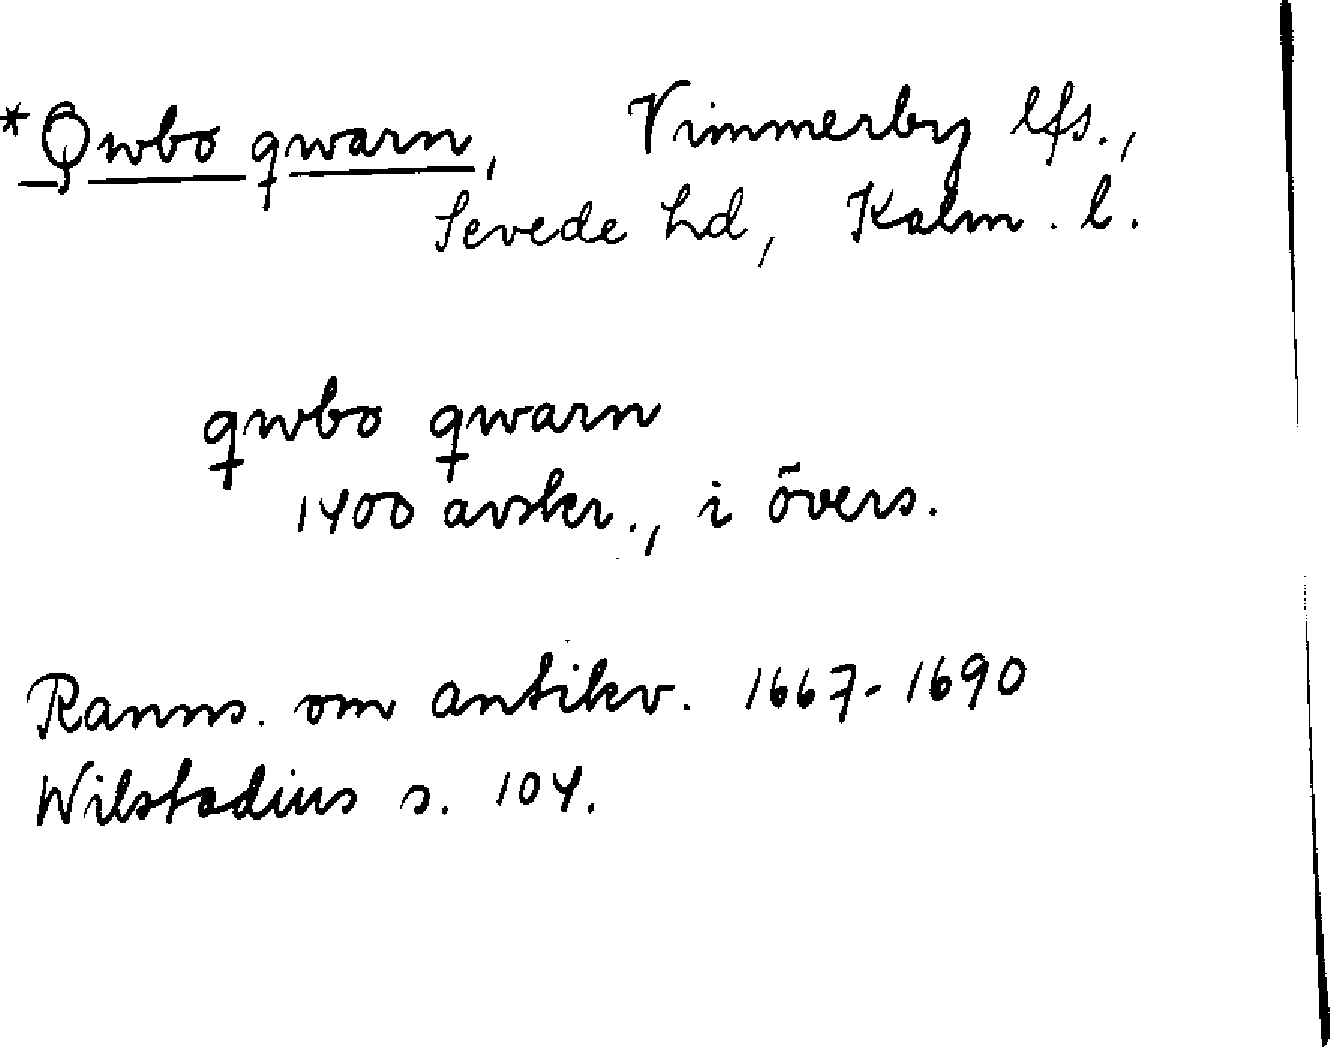 *Qwbo qwarn, Vimmerby lfs.,
Sevede hd, Kalm. l.
qwbo qwarn
1400 avskr., i övers.
Ranns. om antikv. 1667-1690
Wilstadius s. 104.